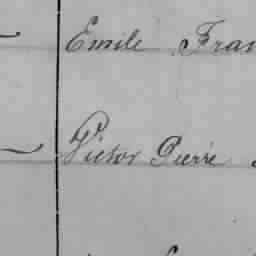 Emile Fran
Victor Pierre